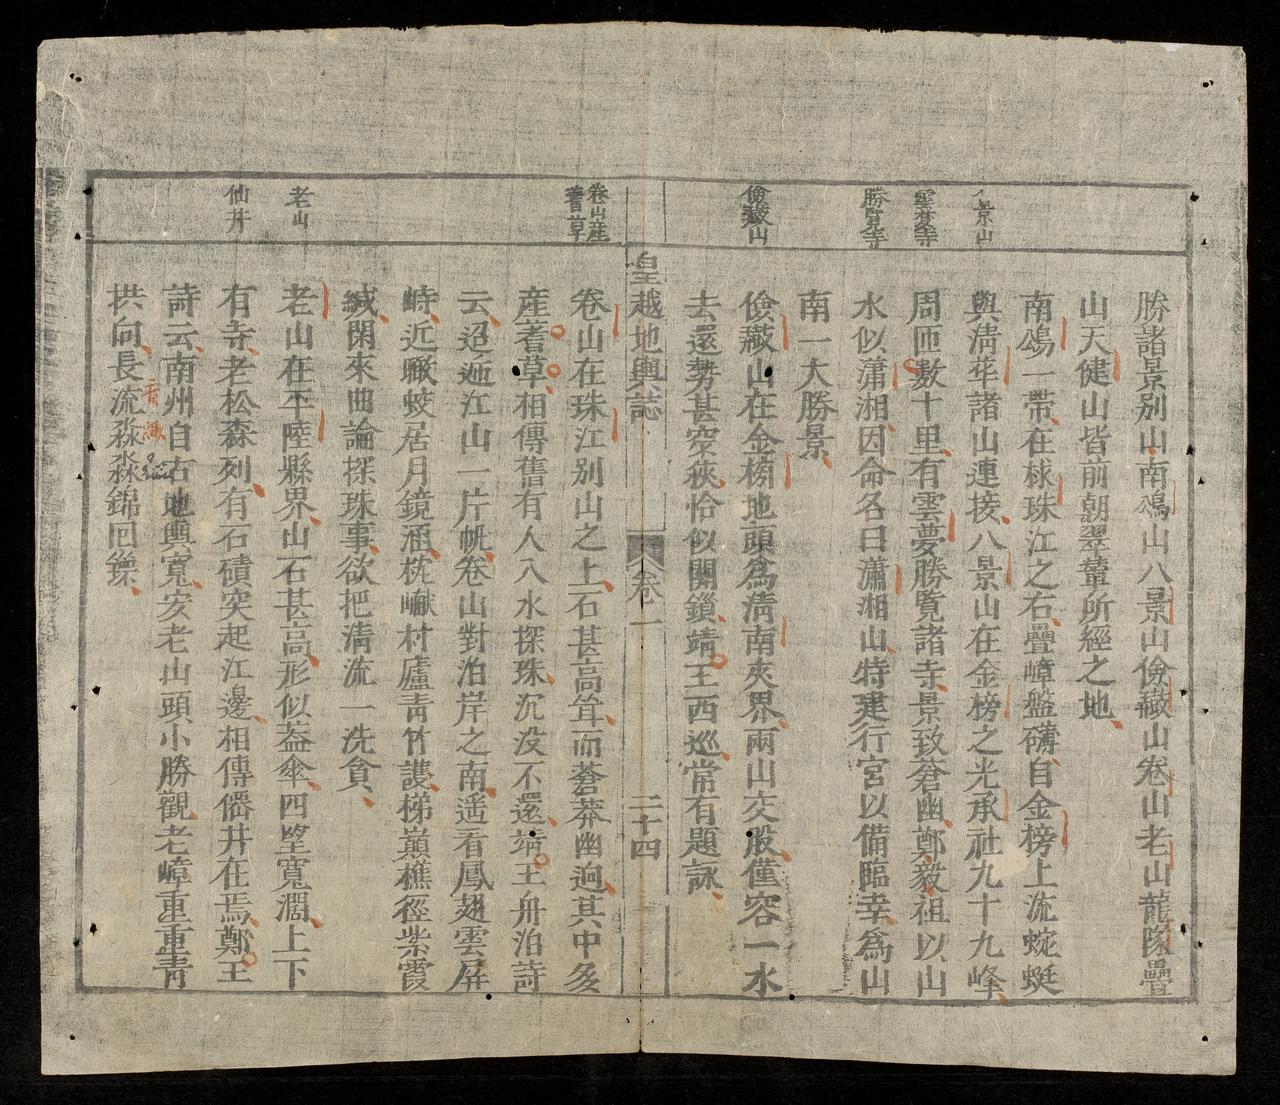 勝諸景别山南鵶山八景山儉藏山卷山老山龍隊疊
山天健山皆前朝翠輦所經之地
南鵶一帶在梂珠江之右疊嶂盤礴自金榜上流蜿蜒
與清華諸山連接八景山在金榜之光承社九十九峰
周匝數十里有雲夢勝覽諸寺景致蒼幽鄭毅祖以山
水似瀟湘因命名曰瀟湘山特建行宮以備臨幸爲山
南一大勝景
儉藏山在金榜地頭爲清南夾界兩山交股僅容一水
去還勢甚窄狹恰似關鎖靖王西巡常有題詠
皇越地輿誌
卷一
二十四
卷山在珠江别山之上石甚高耸而蒼莽幽迥其中多
産蓍草相傳舊有人入水探珠沉没不還靖王舟泊詩
云迢遞江山一片帆卷山對泊岸之南遥看鳳翅雲屏
峙近瞰蛟居月鏡涵枕巘村廬靑竹護梯巔樵徑紫霞
緘閑來曲論探珠事欲把清流一洗貪
老山在平陸縣界山石甚高形似蓋傘四望寬濶上下
有寺老松森列有石磧突起江邊相傳僊井在焉鄭王
詩云南州自古地輿寬安老山頭小勝觀老嶂重重靑
拱向長流淼淼錦回鑠
八景山
雲夢寺
勝覽寺
儉藏山
卷山産
蓍草
老山
仙井